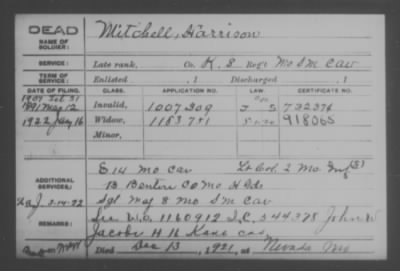 DEAD
NAME OF SOLDIER: Mitchell, Harrison
SERVICE: Late rank, Co. K. 8 Reg't Mo S M Cav
TERM OF SERVICE: Enlisted , 1 Discharged , 1
DATE OF FILING. CLASS. APPLICATION NO. LAW. CERTIFICATE NO.
1891 May 12 Invalid, 1007309 732374
1922 Jany 16 Widow, 1183751 918065
Minor,
ADDITIONAL SERVICES: E 14 Mo Cav Lt Col. 2 Mo Inf
B Benton Co Mo H Gds
3-14-92 Sgt Maj 8 Mo S M Cav
REMARKS: See W.O. 1160912 I.C. 544378 John W
Jacobs H 16 Kans Cav
Died Dec 13, 1921, at Nevada Mo